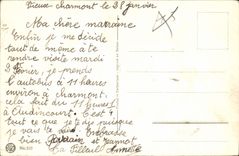 Vieux Charmont le 28 janvier
Ma chère marraine
Enfin je me décide
tout de même à te
rendre visite mardi
2 Février, je prends
l'autobus à 11 heures
environ à Charmont,
cela fait du 11 heures ½
à Audincourt. C'est
tout ce que je dis puisque
je vais te voir. Embrasse
bien Parrain et Jeannot
Ta filleule